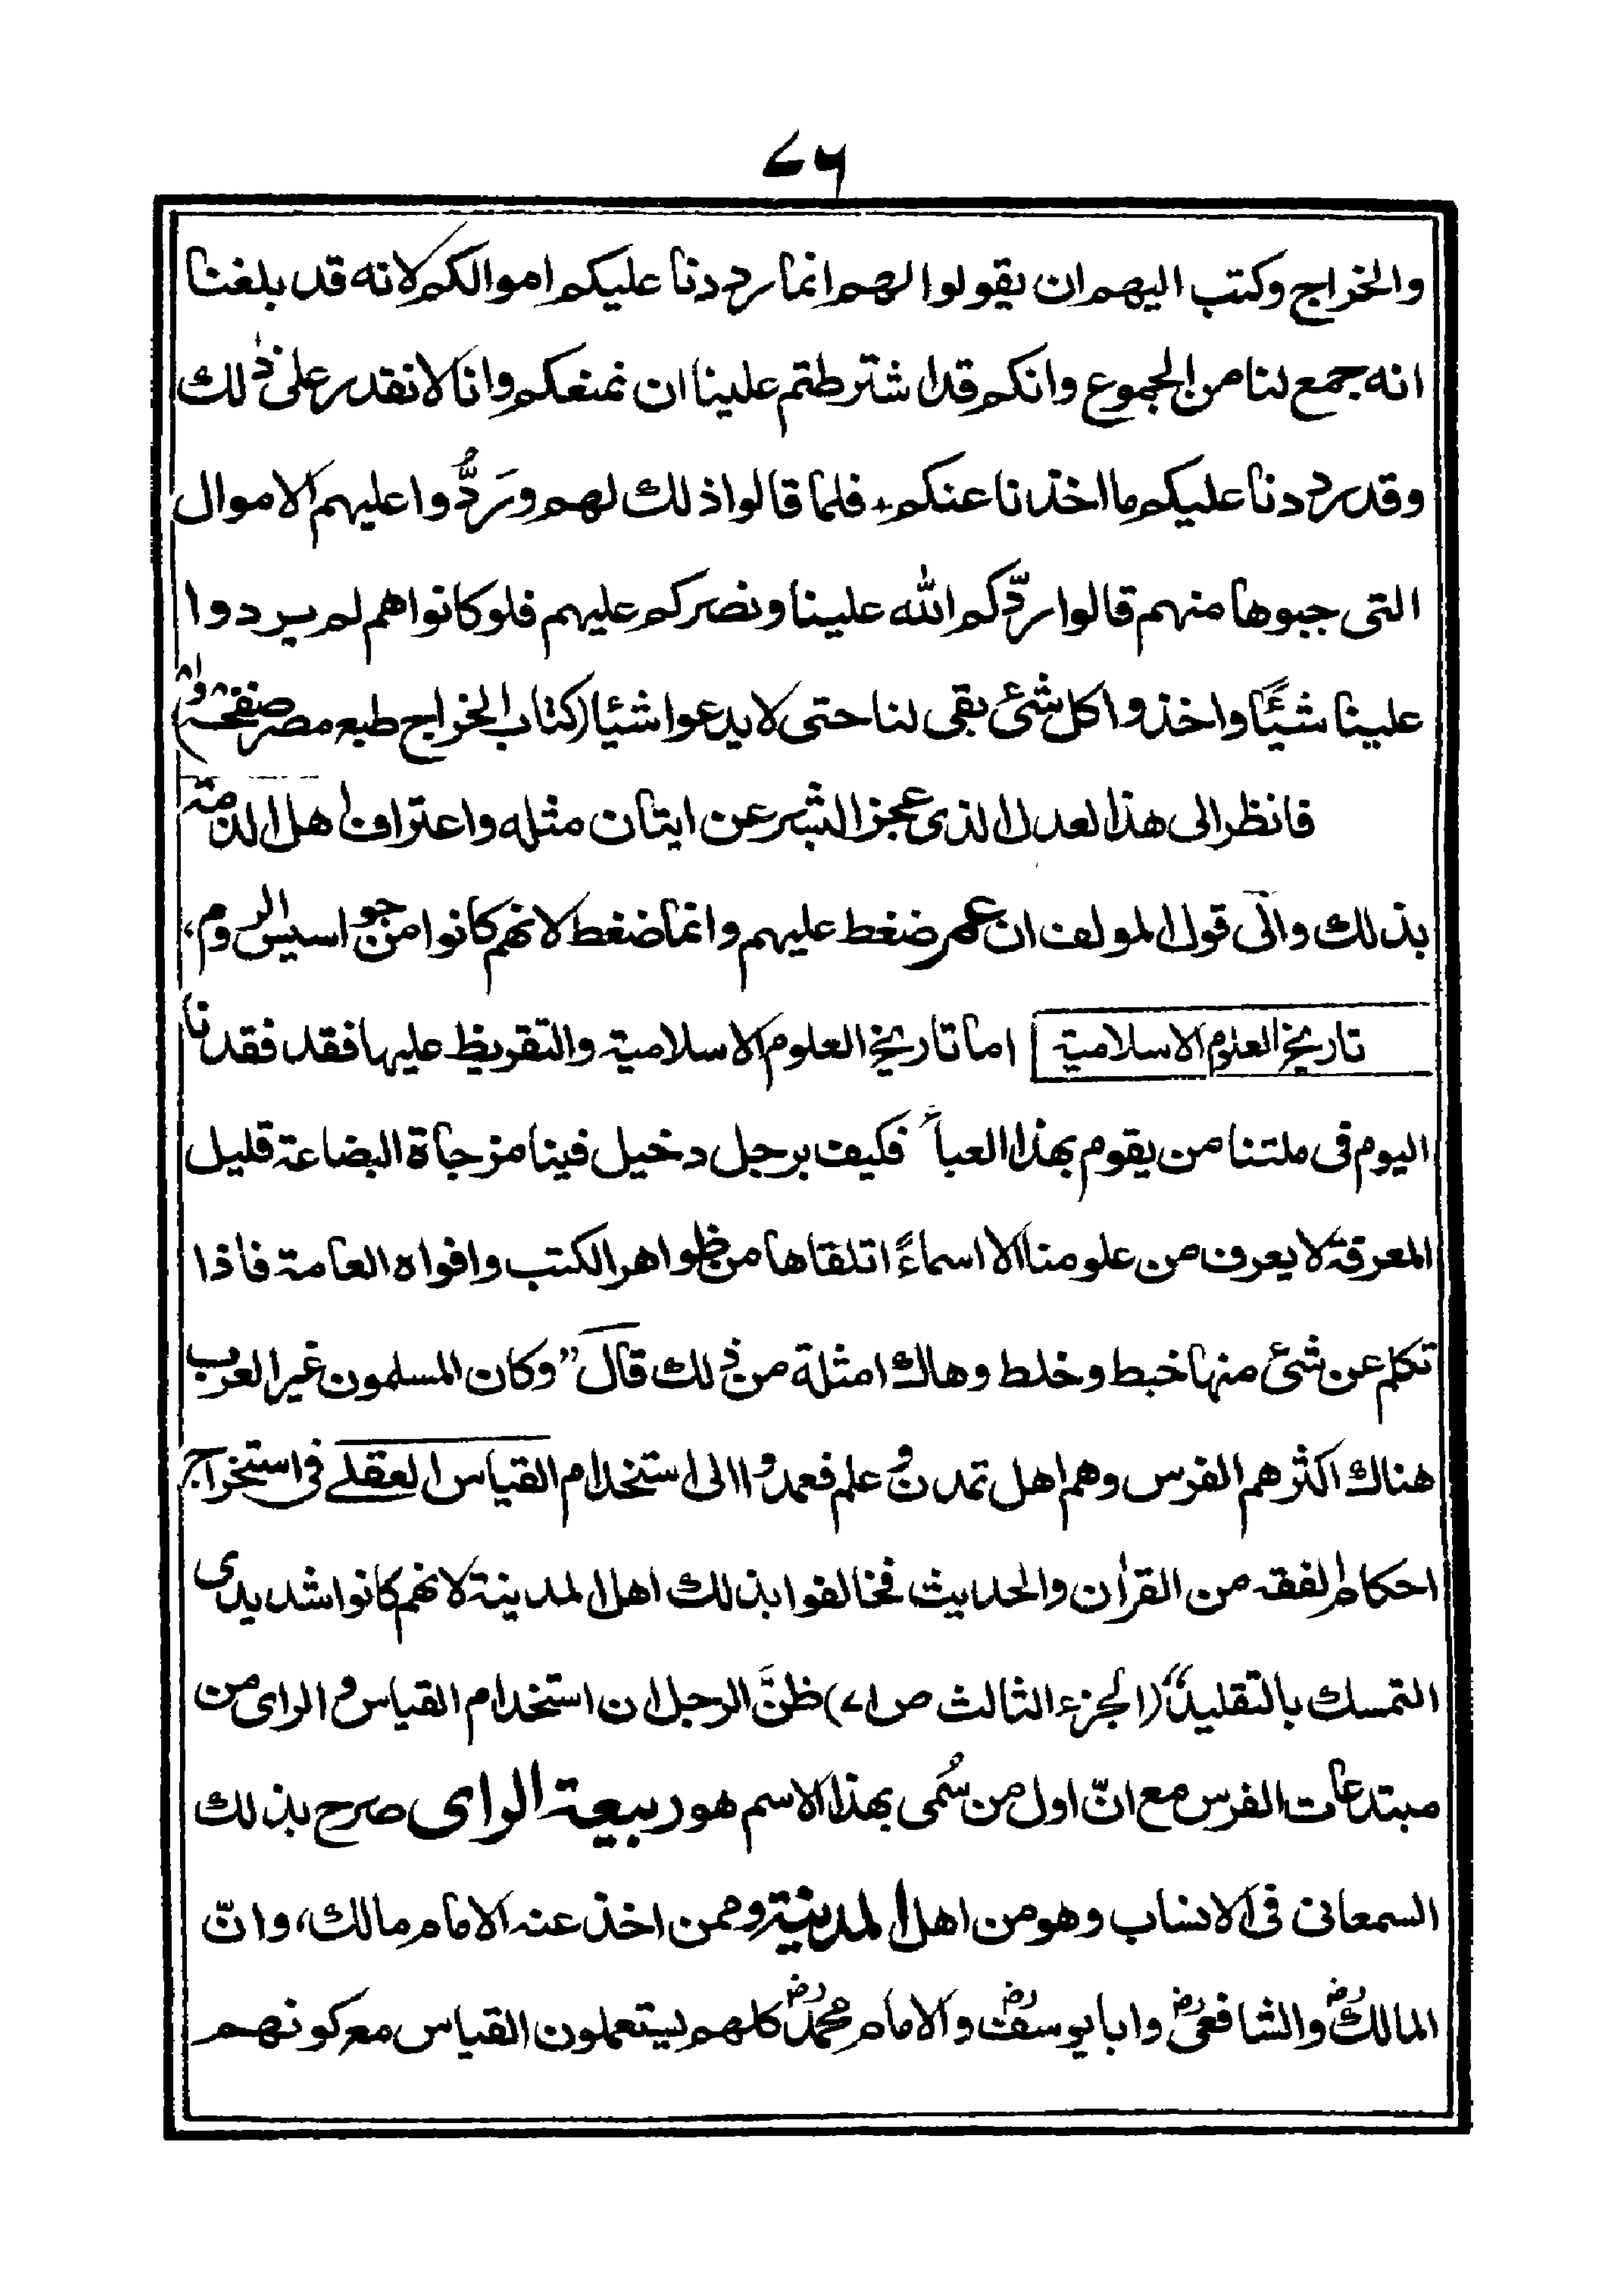 ٧٦
والخراج وكتب اليهم ان يقولوا لهم انما رددنا عليكم اموالكم لانه قد بلغنا
انه جمع لنا من الجموع وانكم قد اشترطتم علينا ان نمنعكم وانا لا نقدر على ذلك
وقد رددنا عليكم ما اخذنا عنكم، فلما قالوا ذلك لهم ورَدُّوا عليهم الاموال
التى جبوها منهم قالوا ردّكم الله علينا ونصركم عليهم فلو كانوا هم لم يردوا
علينا شيئًا واخذوا كل شئ بقى لنا حتى لا يدعوا شئيا (كتاب الخراج طبع مصر صفحه
فانظر الى هذا لعدل الذى عجز البشر عن ايتان مثله واعتراف اهل الذمة
بذلك والى قول المولف ان عمر ضغط عليهم وانما ضغط لانهم كانوا من جواسيس الروم،
تاريخ العلوم الاسلامية | اما تاريخ العلوم الاسلامية والتقريظ عليها فقد فقدنا
اليوم فى ملتنا من يقوم بهذا العبأ فكيف برجل دخيل فينا مزجاة البضاعة قليل
المعرفة لا يعرف من علومنا الا اسماءً اتلقاها من ظواهر الكتب وافواه العامة فاذا
تكلم عن شئ منها خبط وخلط وهاك امثلة من ذلك قال "وكان المسلمون غير العرب
هناك اكثرهم الفرس وهم اهل تمدن وعلم فعمدوا الى استخدام القياس العقلے فى استخراج
احكام الفقه من القرآن والحديث فخالفوا بذلك اهل المدينة لانهم كانوا شديدى
التمسك بالتقليد" (الجزء الثالث ص ٧١) ظنَّ الرجل ان استخدام القياس والراى من
مبتدعات الفرس مع انّ اول من سُمى بهذا الاسم هو ربيعة الراى صرح بذلك
السمعانى فى الانساب وهو من اهل المدينة وممن اخذ عنه الامام مالك، وانّ
المالكؓ والشافعىؓ وابا يوسفؓ والامام محمدؓ كلهم يستعملون القياس مع كونهم